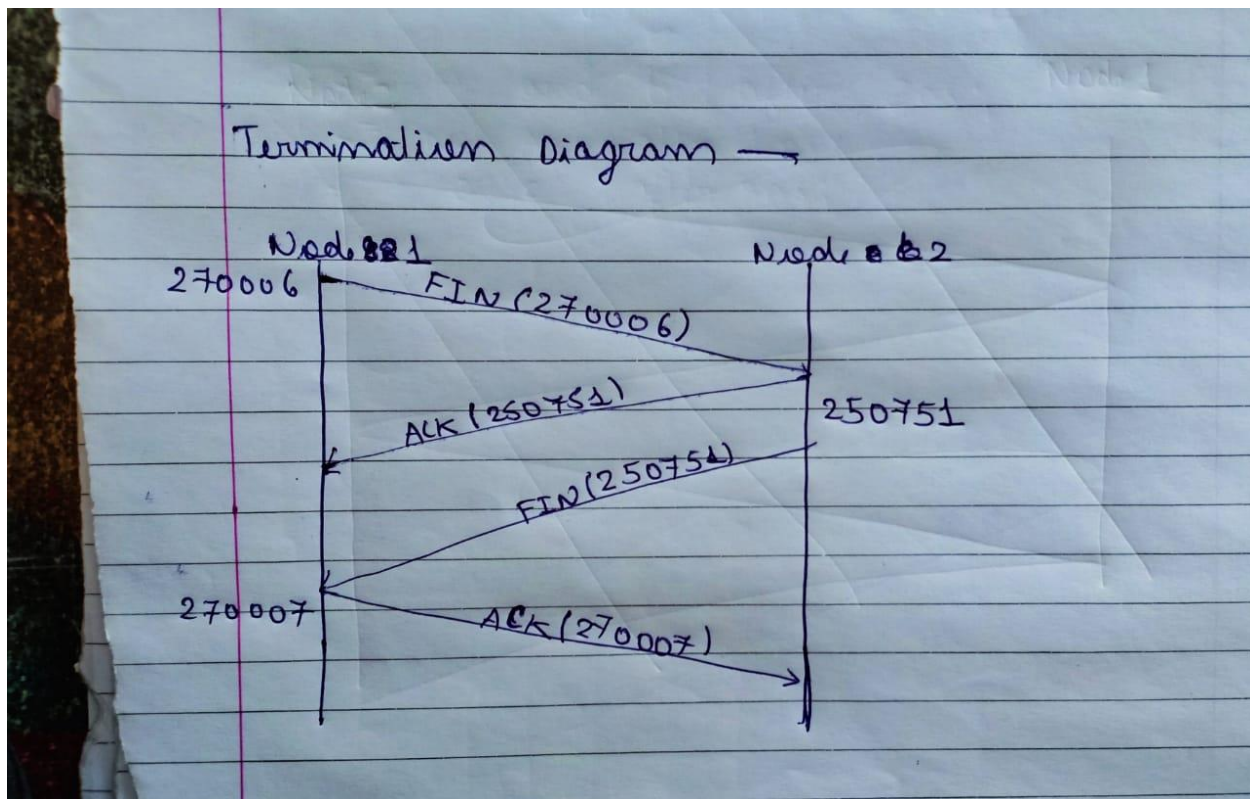 Termination Diagram —
Node 1
Node 2
270006
FIN (270006)
ACK (250751)
250751
FIN (250751)
270007
ACK (270007)